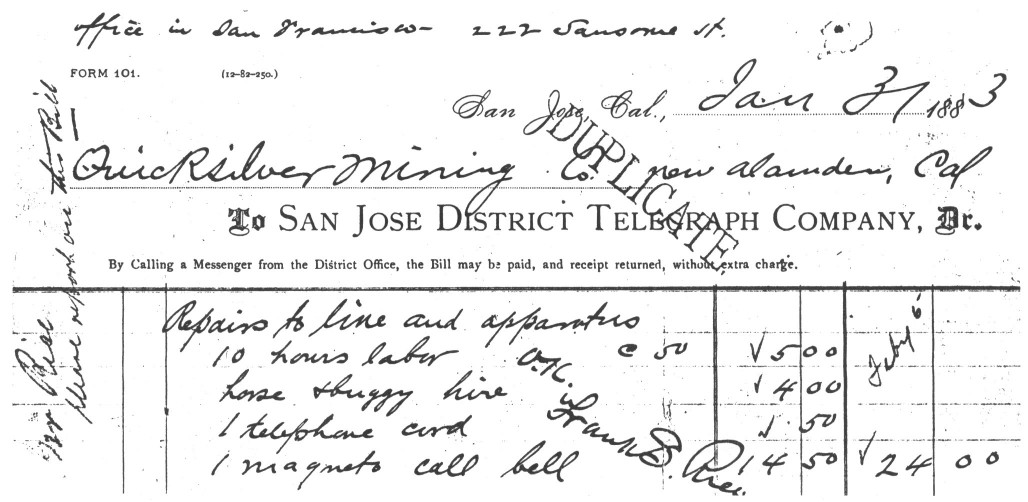 office in San Francisco - 222 Sansome St.
FORM 101. (12-82-250.)
San Jose, Cal., Jan 31 1883
DUPLICATE
Quicksilver Mining Co. New Almaden, Cal
To SAN JOSE DISTRICT TELEGRAPH COMPANY, Dr.
By Calling a Messenger from the District Office, the Bill may be paid, and receipt returned, without extra charge.
Please report on this Bill
Repairs to line and apparatus
10 hours labor @ 50 √ 5 00
horse & buggy hire √ 4 00
1 telephone cord √ 50
1 magneto call bell 14 50 √ 24 00
O.K.
Feby 6